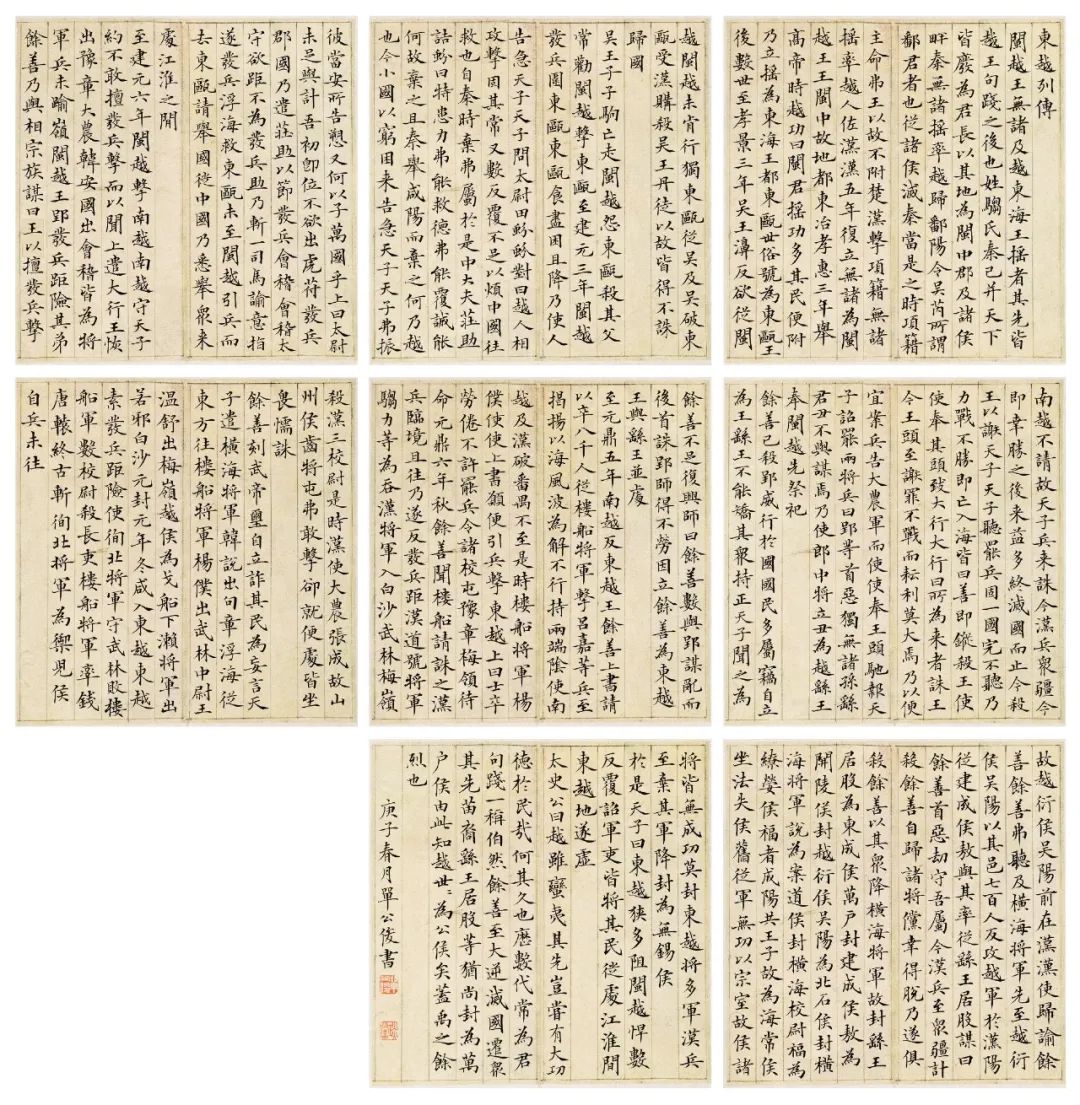 東越列傳
閩越王無諸及越東海王搖者其先皆
越王句踐之後也姓騶氏秦已并天下
皆廢為君長以其地為閩中郡及諸侯
畔秦無諸搖率越歸鄱陽令吳芮所謂
鄱君者也從諸侯滅秦當是之時項籍
主命弗王以故不附楚漢擊項籍無諸
搖率越人佐漢漢五年復立無諸為閩
越王王閩中故地都東冶孝惠三年舉
高帝時越功曰閩君搖功多其民便附
乃立搖為東海王都東甌世俗號為東甌王
後數世至孝景三年吳王濞反欲從閩
越閩越未肯行獨東甌從吳及吳破東
甌受漢購殺吳王丹徒以故皆得不誅
歸國
吳王子子駒亡走閩越怨東甌殺其父
常勸閩越擊東甌至建元三年閩越
發兵圍東甌東甌食盡困且降乃使人
告急天子天子問太尉田蚡蚡對曰越人相
攻擊固其常又數反覆不足以煩中國往
救也自秦時棄弗屬於是中大夫莊助
詰蚡曰特患力弗能救德弗能覆誠能
何故棄之且秦舉咸陽而棄之何乃越
也今小國以窮困来告急天子天子弗振
彼當安所告愬又何以子萬國乎上曰太尉
未足與計吾初即位不欲出虎符發兵
郡國乃遣莊助以節發兵會稽會稽太
守欲距不為發兵助乃斬一司馬諭意指
遂發兵浮海救東甌未至閩越引兵而
去東甌請舉國徙中國乃悉舉眾来
處江淮之閒
至建元六年閩越擊南越南越守天子
約不敢擅發兵擊而以聞上遣大行王恢
出豫章大農韓安國出會稽皆為將
軍兵未踰嶺閩越王郢發兵距險其弟
餘善乃與相宗族謀曰王以擅發兵擊
南越不請故天子兵来誅今漢兵眾彊今
即幸勝之後来益多終滅國而止今殺
王以謝天子天子聽罷兵固一國完不聽乃
力戰不勝即亡入海皆曰善即鏦殺王使
使奉其頭致大行大行曰所為来者誅王
今王頭至謝罪不戰而耘利莫大焉乃以便
宜案兵告大農軍而使使奉王頭馳報天
子詔罷兩將兵曰郢等首惡獨無諸孫繇
君丑不與謀焉乃使郎中將立丑為越繇王
奉閩越先祭祀
餘善已殺郢威行於國國民多屬竊自立
為王繇王不能矯其眾持正天子聞之為
餘善不足復興師曰餘善數與郢謀亂而
後首誅郢師得不勞因立餘善為東越
王與繇王並處
至元鼎五年南越反東越王餘善上書請
以卒八千人從樓船將軍擊呂嘉等兵至
揭揚以海風波為解不行持兩端陰使南
越及漢破番禺不至是時樓船將軍楊
僕使使上書願便引兵擊東越上曰士卒
勞倦不許罷兵令諸校屯豫章梅領待
命元鼎六年秋餘善聞樓船請誅之漢
兵臨境且往乃遂反發兵距漢道號將軍
騶力等為吞漢將軍入白沙武林梅嶺
殺漢三校尉是時漢使大農張成故山
州侯齒將屯弗敢擊卻就便處皆坐
畏懦誅
餘善刻武帝璽自立詐其民為妄言天
子遣橫海將軍韓說出句章浮海從
東方往樓船將軍楊僕出武林中尉王
溫舒出梅嶺越侯為戈船下瀨將軍出
若邪白沙元封元年冬咸入東越東越
素發兵距險使徇北將軍守武林敗樓
船軍數校尉殺長吏樓船將軍率錢
唐轅終古斬徇北將軍為禦兒侯
自兵未往
故越衍侯吳陽前在漢漢使歸諭餘
善餘善弗聽及橫海將軍先至越衍
侯吳陽以其邑七百人反攻越軍於漢陽
從建成侯敖與其率從繇王居股謀曰
餘善首惡劫守吾屬今漢兵至眾彊計
殺餘善自歸諸將儻幸得脫乃遂俱
殺餘善以其眾降橫海將軍故封繇王
居股為東成侯萬戶封建成侯敖為
開陵侯封越衍侯吳陽為北石侯封橫
海將軍說為案道侯封橫海校尉福為
繚嫈侯福者成陽共王子故為海常侯
坐法失侯舊從軍無功以宗室故侯諸
將皆無成功莫封東越將多軍漢兵
至棄其軍降封為無錫侯
於是天子曰東越狹多阻閩越悍數
反覆詔軍吏皆將其民徙處江淮閒
東越地遂虛
太史公曰越雖蠻夷其先豈嘗有大功
德於民哉何其久也歷數代常為君
王句踐一稱伯然餘善至大逆滅國遷眾
其先苗裔繇王居股等猶尚封為萬
戶侯由此知越世〻為公侯矣蓋禹之餘
烈也
庚子春月單公俊書